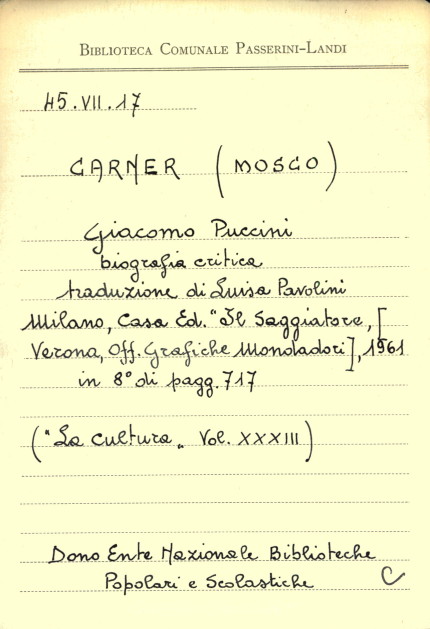 BIBLIOTECA COMUNALE PASSERINI-LANDI
45.VII.17
CARNER (MOSCO)
Giacomo Puccini
biografia critica
traduzione di Luisa Pavolini
Milano, Casa Ed. "Il Saggiatore, [
Verona, Off. Grafiche Mondadori], 1961
in 8° di pagg. 717
("La cultura„ Vol. XXXIII)
Dono Ente Nazionale Biblioteche
Popolari e Scolastiche C